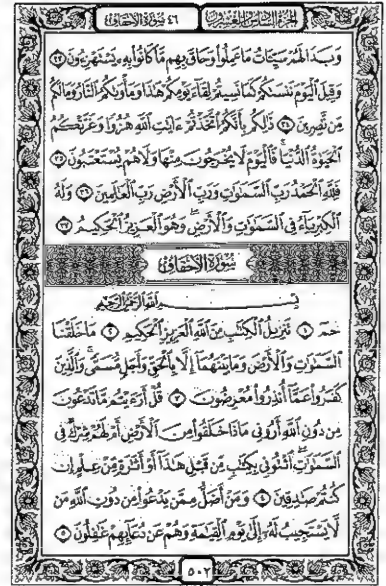 الجزء السادس والعشرون
٤٦ سورة الأحقاف
وَبَدَا لَهُمْ سَيِّئَاتُ مَا عَمِلُوا وَحَاقَ بِهِم مَّا كَانُوا بِهِ يَسْتَهْزِءُونَ ٣٣
وَقِيلَ الْيَوْمَ نَنسَىٰكُمْ كَمَا نَسِيتُمْ لِقَاءَ يَوْمِكُمْ هَٰذَا وَمَأْوَىٰكُمُ النَّارُ وَمَا لَكُم
مِّن نَّٰصِرِينَ ٣٤ ذَٰلِكُم بِأَنَّكُمُ اتَّخَذْتُمْ ءَايَٰتِ اللَّهِ هُزُوًا وَغَرَّتْكُمُ
الْحَيَوٰةُ الدُّنْيَا فَالْيَوْمَ لَا يُخْرَجُونَ مِنْهَا وَلَا هُمْ يُسْتَعْتَبُونَ ٣٥
فَلِلَّهِ الْحَمْدُ رَبِّ السَّمَٰوَٰتِ وَرَبِّ الْأَرْضِ رَبِّ الْعَٰلَمِينَ ٣٦ وَلَهُ
الْكِبْرِيَاءُ فِي السَّمَٰوَٰتِ وَالْأَرْضِ وَهُوَ الْعَزِيزُ الْحَكِيمُ ٣٧
سُورَةُ الْأَحْقَافِ
بِسْمِ اللَّهِ الرَّحْمَٰنِ الرَّحِيمِ
حمٓ ١ تَنزِيلُ الْكِتَٰبِ مِنَ اللَّهِ الْعَزِيزِ الْحَكِيمِ ٢ مَا خَلَقْنَا
السَّمَٰوَٰتِ وَالْأَرْضَ وَمَا بَيْنَهُمَا إِلَّا بِالْحَقِّ وَأَجَلٍ مُّسَمًّى وَالَّذِينَ
كَفَرُوا عَمَّا أُنذِرُوا مُعْرِضُونَ ٣ قُلْ أَرَءَيْتُم مَّا تَدْعُونَ
مِن دُونِ اللَّهِ أَرُونِي مَاذَا خَلَقُوا مِنَ الْأَرْضِ أَمْ لَهُمْ شِرْكٌ فِي
السَّمَٰوَٰتِ ائْتُونِي بِكِتَٰبٍ مِّن قَبْلِ هَٰذَا أَوْ أَثَٰرَةٍ مِّنْ عِلْمٍ إِن
كُنتُمْ صَٰدِقِينَ ٤ وَمَنْ أَضَلُّ مِمَّن يَدْعُوا مِن دُونِ اللَّهِ مَن
لَّا يَسْتَجِيبُ لَهُ إِلَىٰ يَوْمِ الْقِيَٰمَةِ وَهُمْ عَن دُعَائِهِمْ غَٰفِلُونَ ٥
٥٠٢